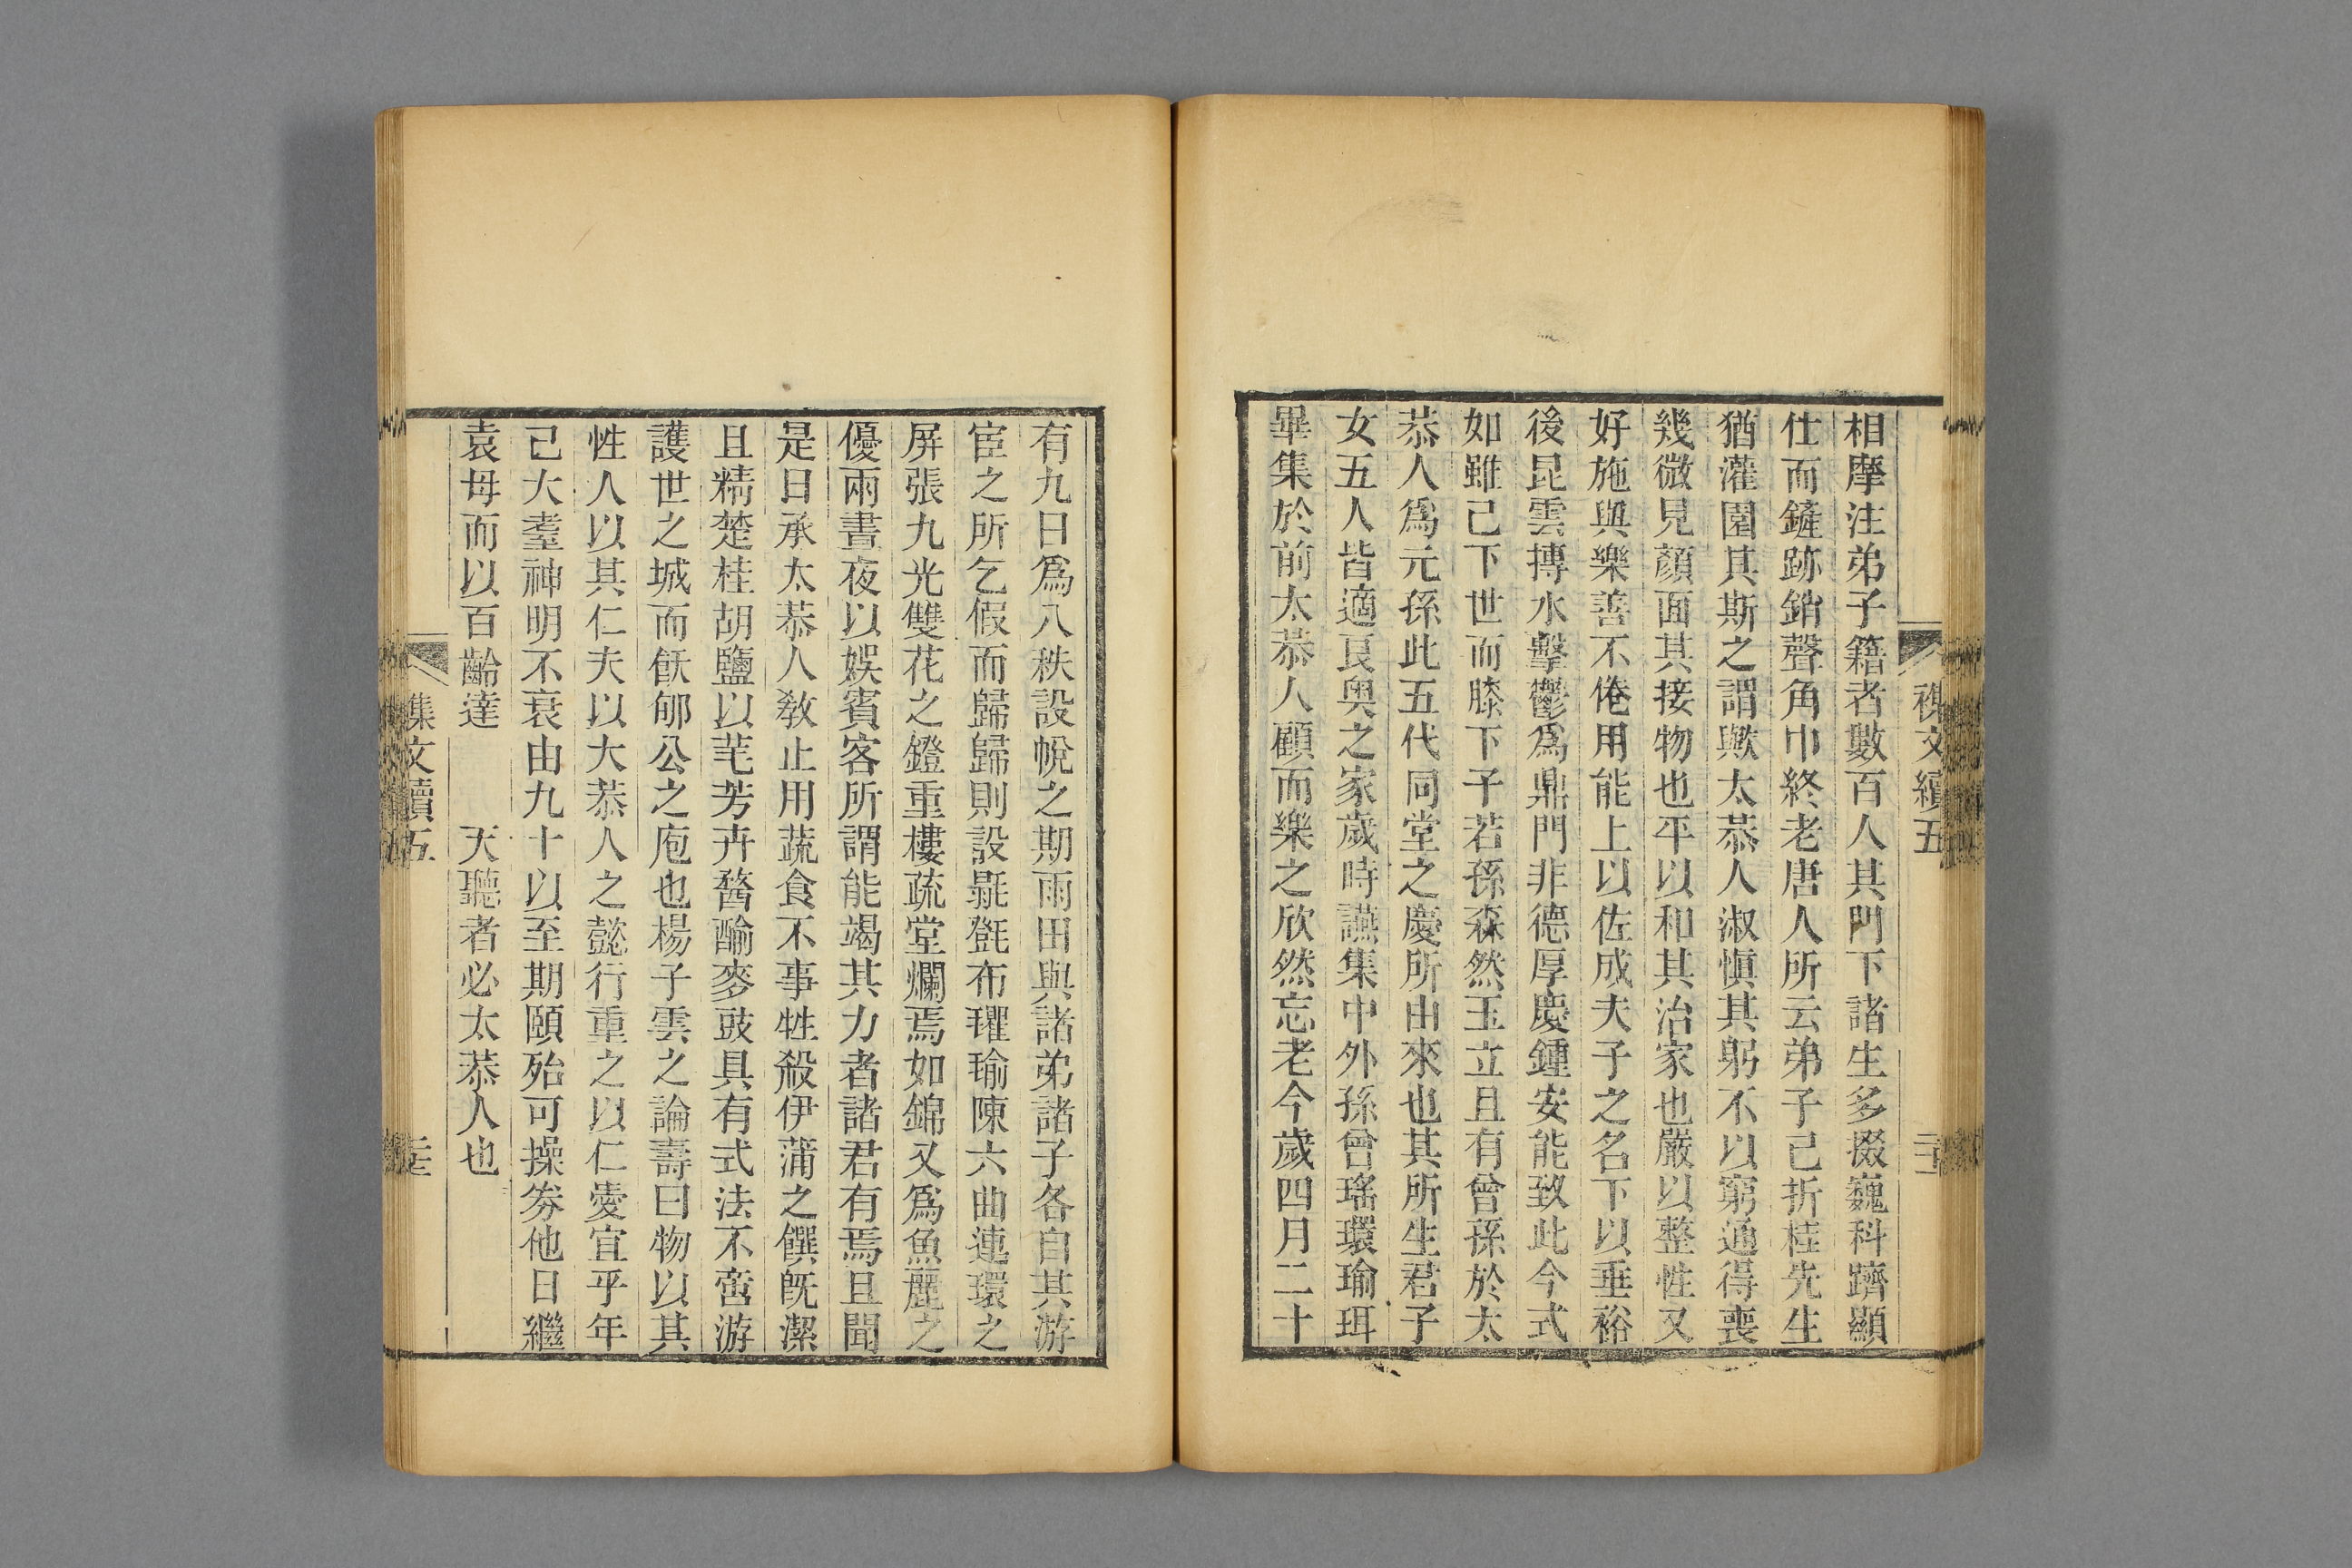 相摩注弟子籍者數百人其門下諸生多掇巍科躋顯
仕而鏟跡銷聲角巾終老唐人所云弟子已折桂先生
猶灌園其斯之謂歟太恭人淑愼其躬不以窮通得喪
幾微見顏面其接物也平以和其治家也嚴以整性又
好施與樂善不倦用能上以佐成夫子之名下以垂裕
後昆雲摶水擊鬱爲鼎門非德厚慶鍾安能致此今式
如雖己下世而膝下子若孫森然玉立且有曾孫於太
恭人爲元孫此五代同堂之慶所由來也其所生君子
女五人皆適良奥之家歲時讌集中外孫曾瑤環瑜珥
畢集於前太恭人顧而樂之欣然忘老今歲四月二十
有九日爲八秩設帨之期雨田與諸弟諸子各自其游
宦之所乞假而歸歸則設㲲㲪布瓘瑜陳六曲連環之
屏張九光雙花之鐙重樓疏堂爛焉如錦又爲魚麗之
優兩晝夜以娛賓客所謂能竭其力者諸君有焉且聞
是日承太恭人敎止用蔬食不事牲殺伊蒲之饌旣潔
且精楚桂胡鹽以芼芳卉醔䤄麥豉具有式法不啻游
護世之城而飫郇公之庖也楊子雲之論壽曰物以其
性人以其仁夫以大恭人之懿行重之以仁愛宜乎年
己大耋神明不衰由九十以至期頤殆可操券他日繼
袁母而以百齡達　　天聽者必太恭人也
集文續五